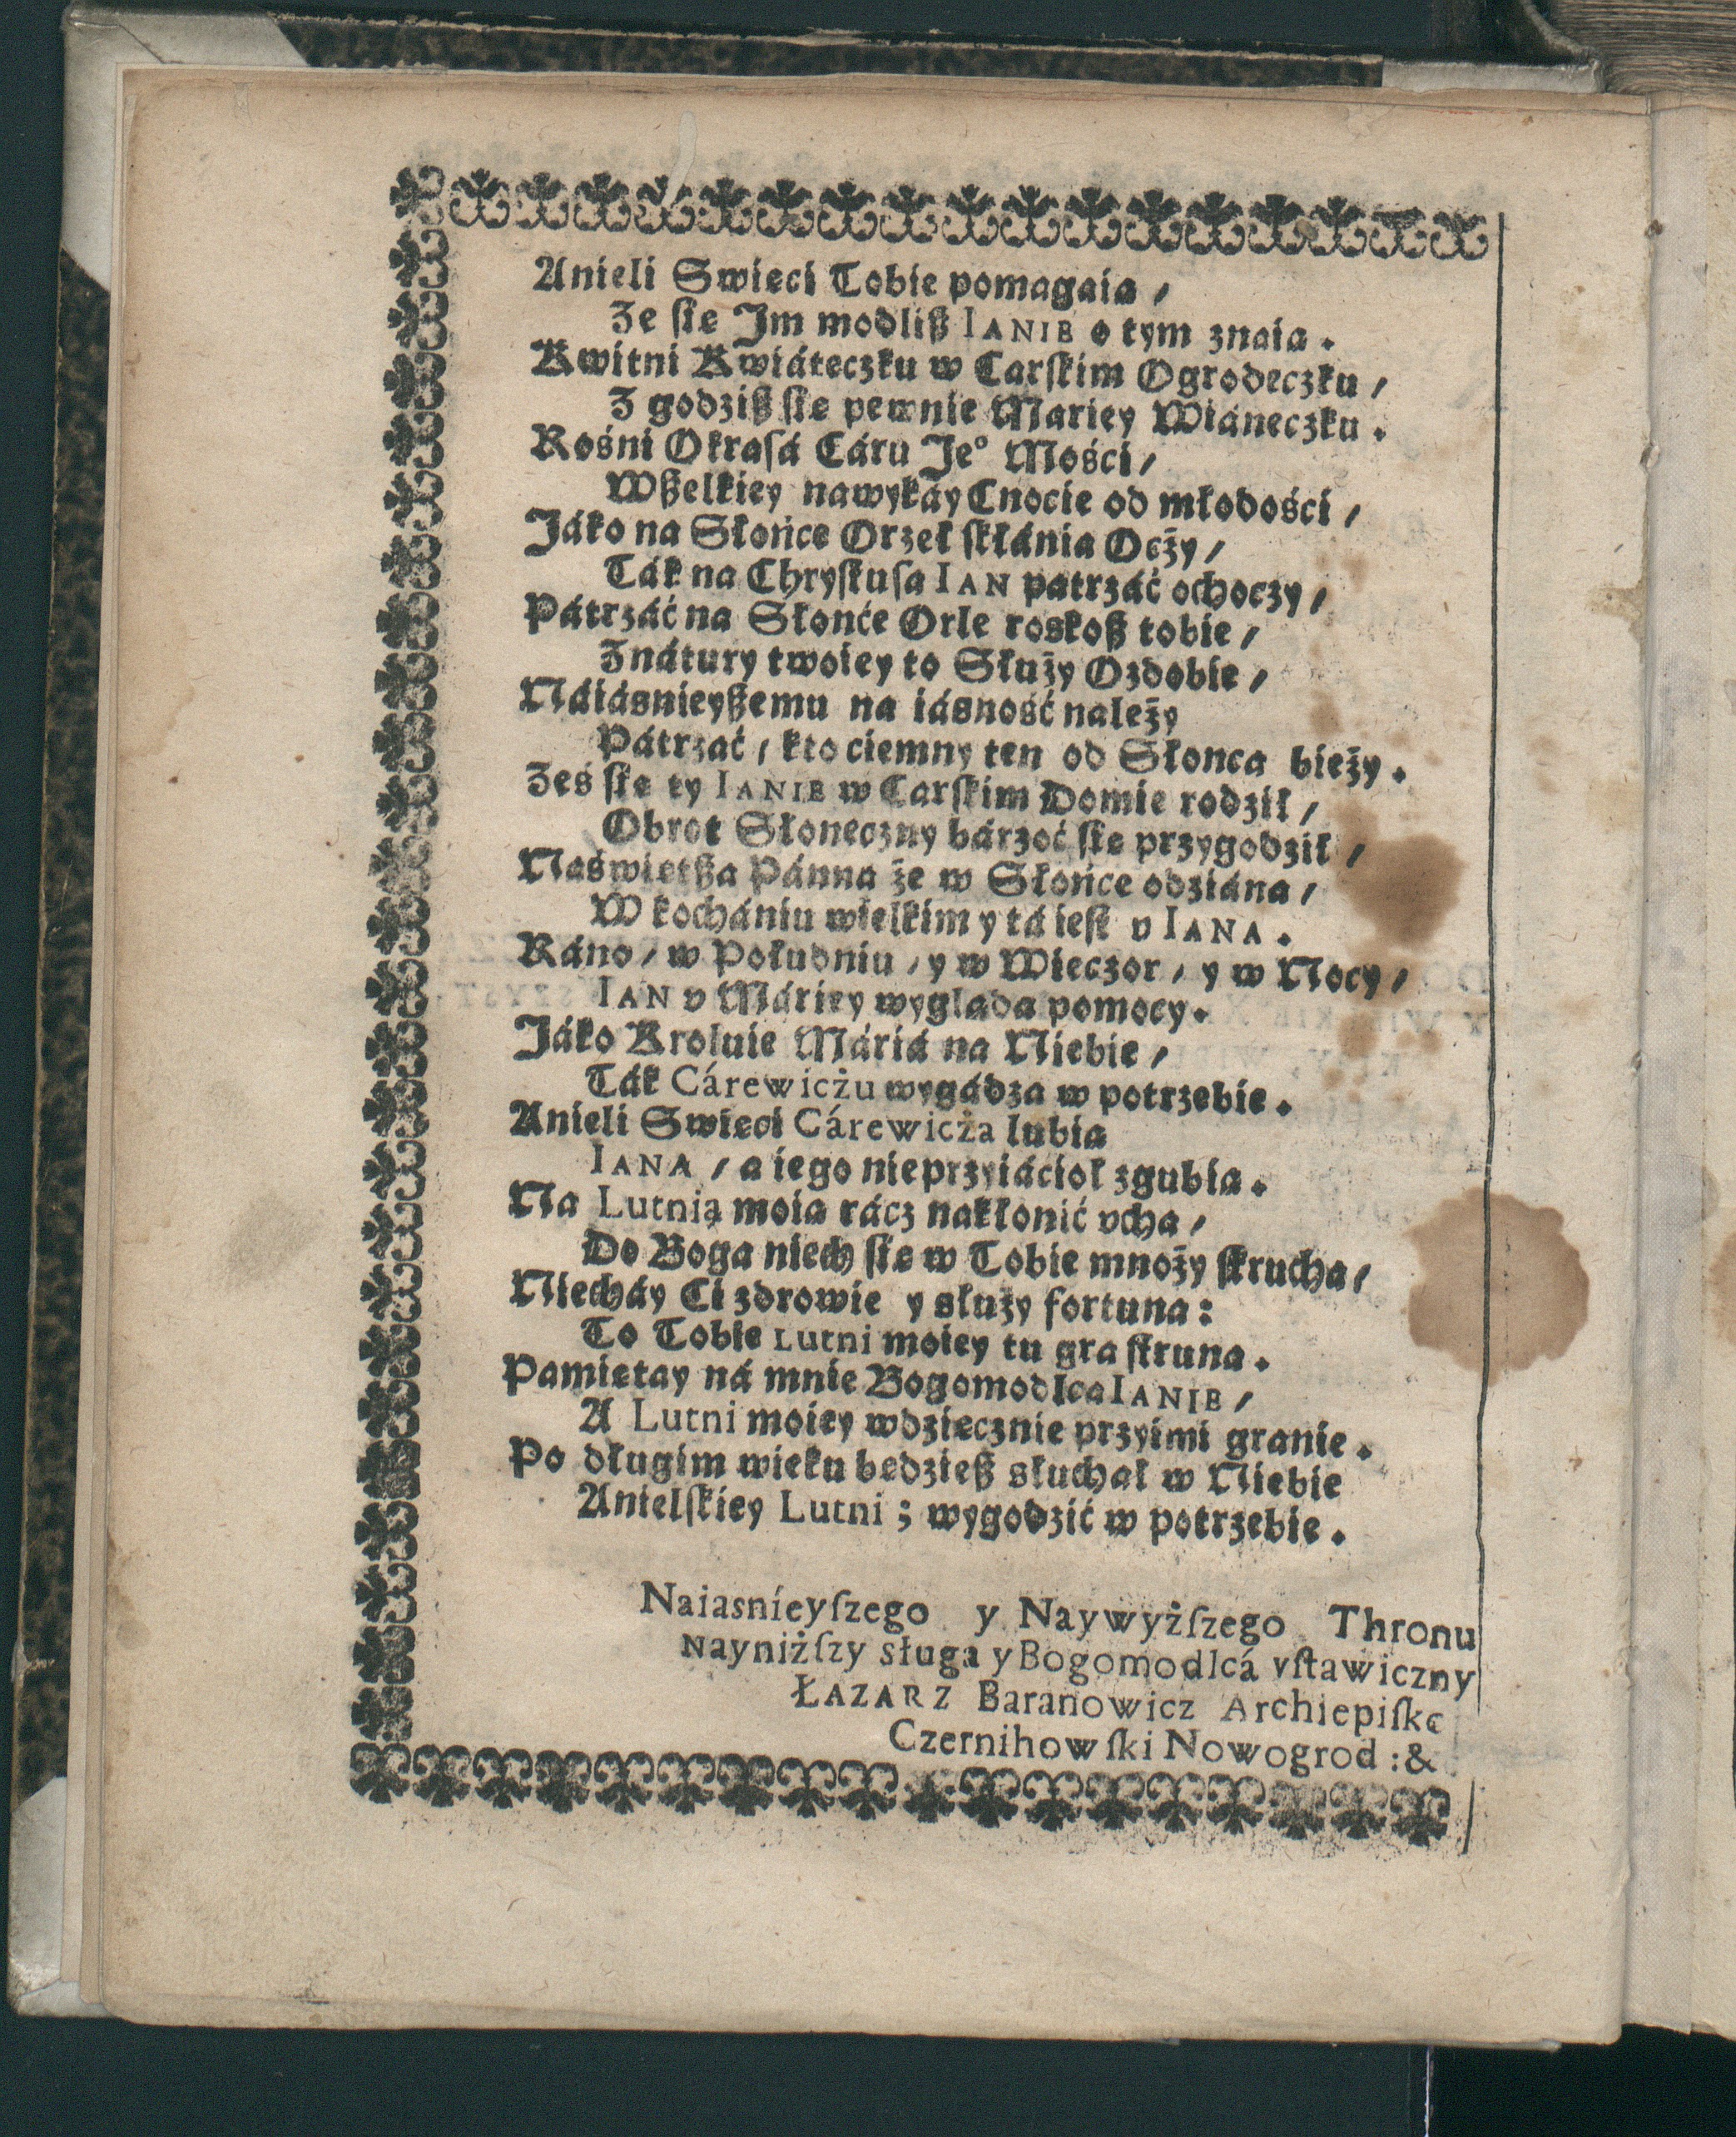 Anieli Swieci Tobie pomagaia /
Ze ſie Jm modliß IANIE o tym znaia .
Kwitni Kwiáteczku w Carſkim Ogrodeczku /
Z godziß ſie pewnie Mariey Wiáneczku .
Rośni Okraſá Cáru Jeº Mości /
Wßelkiey nawykáy Cnocie od młodości /
Jáko na Słońce Orzeł ſkłánia Ocży /
Ták na Chryſtuſa IAN patrzáć ochoczy /
Pátrzáć na Słońće Orle roskoß tobie /
Znátury twoiey to Służy Ozdobie /
Náiásnieyßemu na iásność należy
Pátrzać / kto ciemny ten od Słonca bieży .
Ześ ſie ty IANIE w Carſkim Domie rodził /
Obrot Słoneczny bárzoć ſie przygodził /
Naświetßa Pánna że w Słońce odziána /
W kochániu wielkim y tá ieſt v IANA .
Ráno / w Południu / y w Wieczor / y w Nocy /
IAN v Máriey wyglada pomocy .
Jáko Kroluie Máriá na Niebie /
Ták Cárewicżu wygádza w potrzebie .
Anieli Swieci Cárewicża lubia
IANA / a iego nieprzyiácioł zgubia .
Na Lutnią moia rácz nakłonić vcha /
Do Boga niech ſie w Tobie mnoży ſkrucha /
Niecháy Ci zdrowie y służy fortuna :
To Tobie Lutni moiey tu gra ſtruna .
Pamietay ná mnie Bogomodlca IANIE /
A Lutni moiey wdziecznie przyimi granie .
Po długim wieku bedzieß słuchał w Niebie
Anielſkiey Lutni ; wygodzić w potrzebie .
Naiasnieyſzego y Naywyżſzego Thronu
Nayniżſzy sługa y Bogomodlcá vſtawiczny
ŁAZARZ Baranowicz Archiepiſkc
Czernihowſki Nowogrod :&